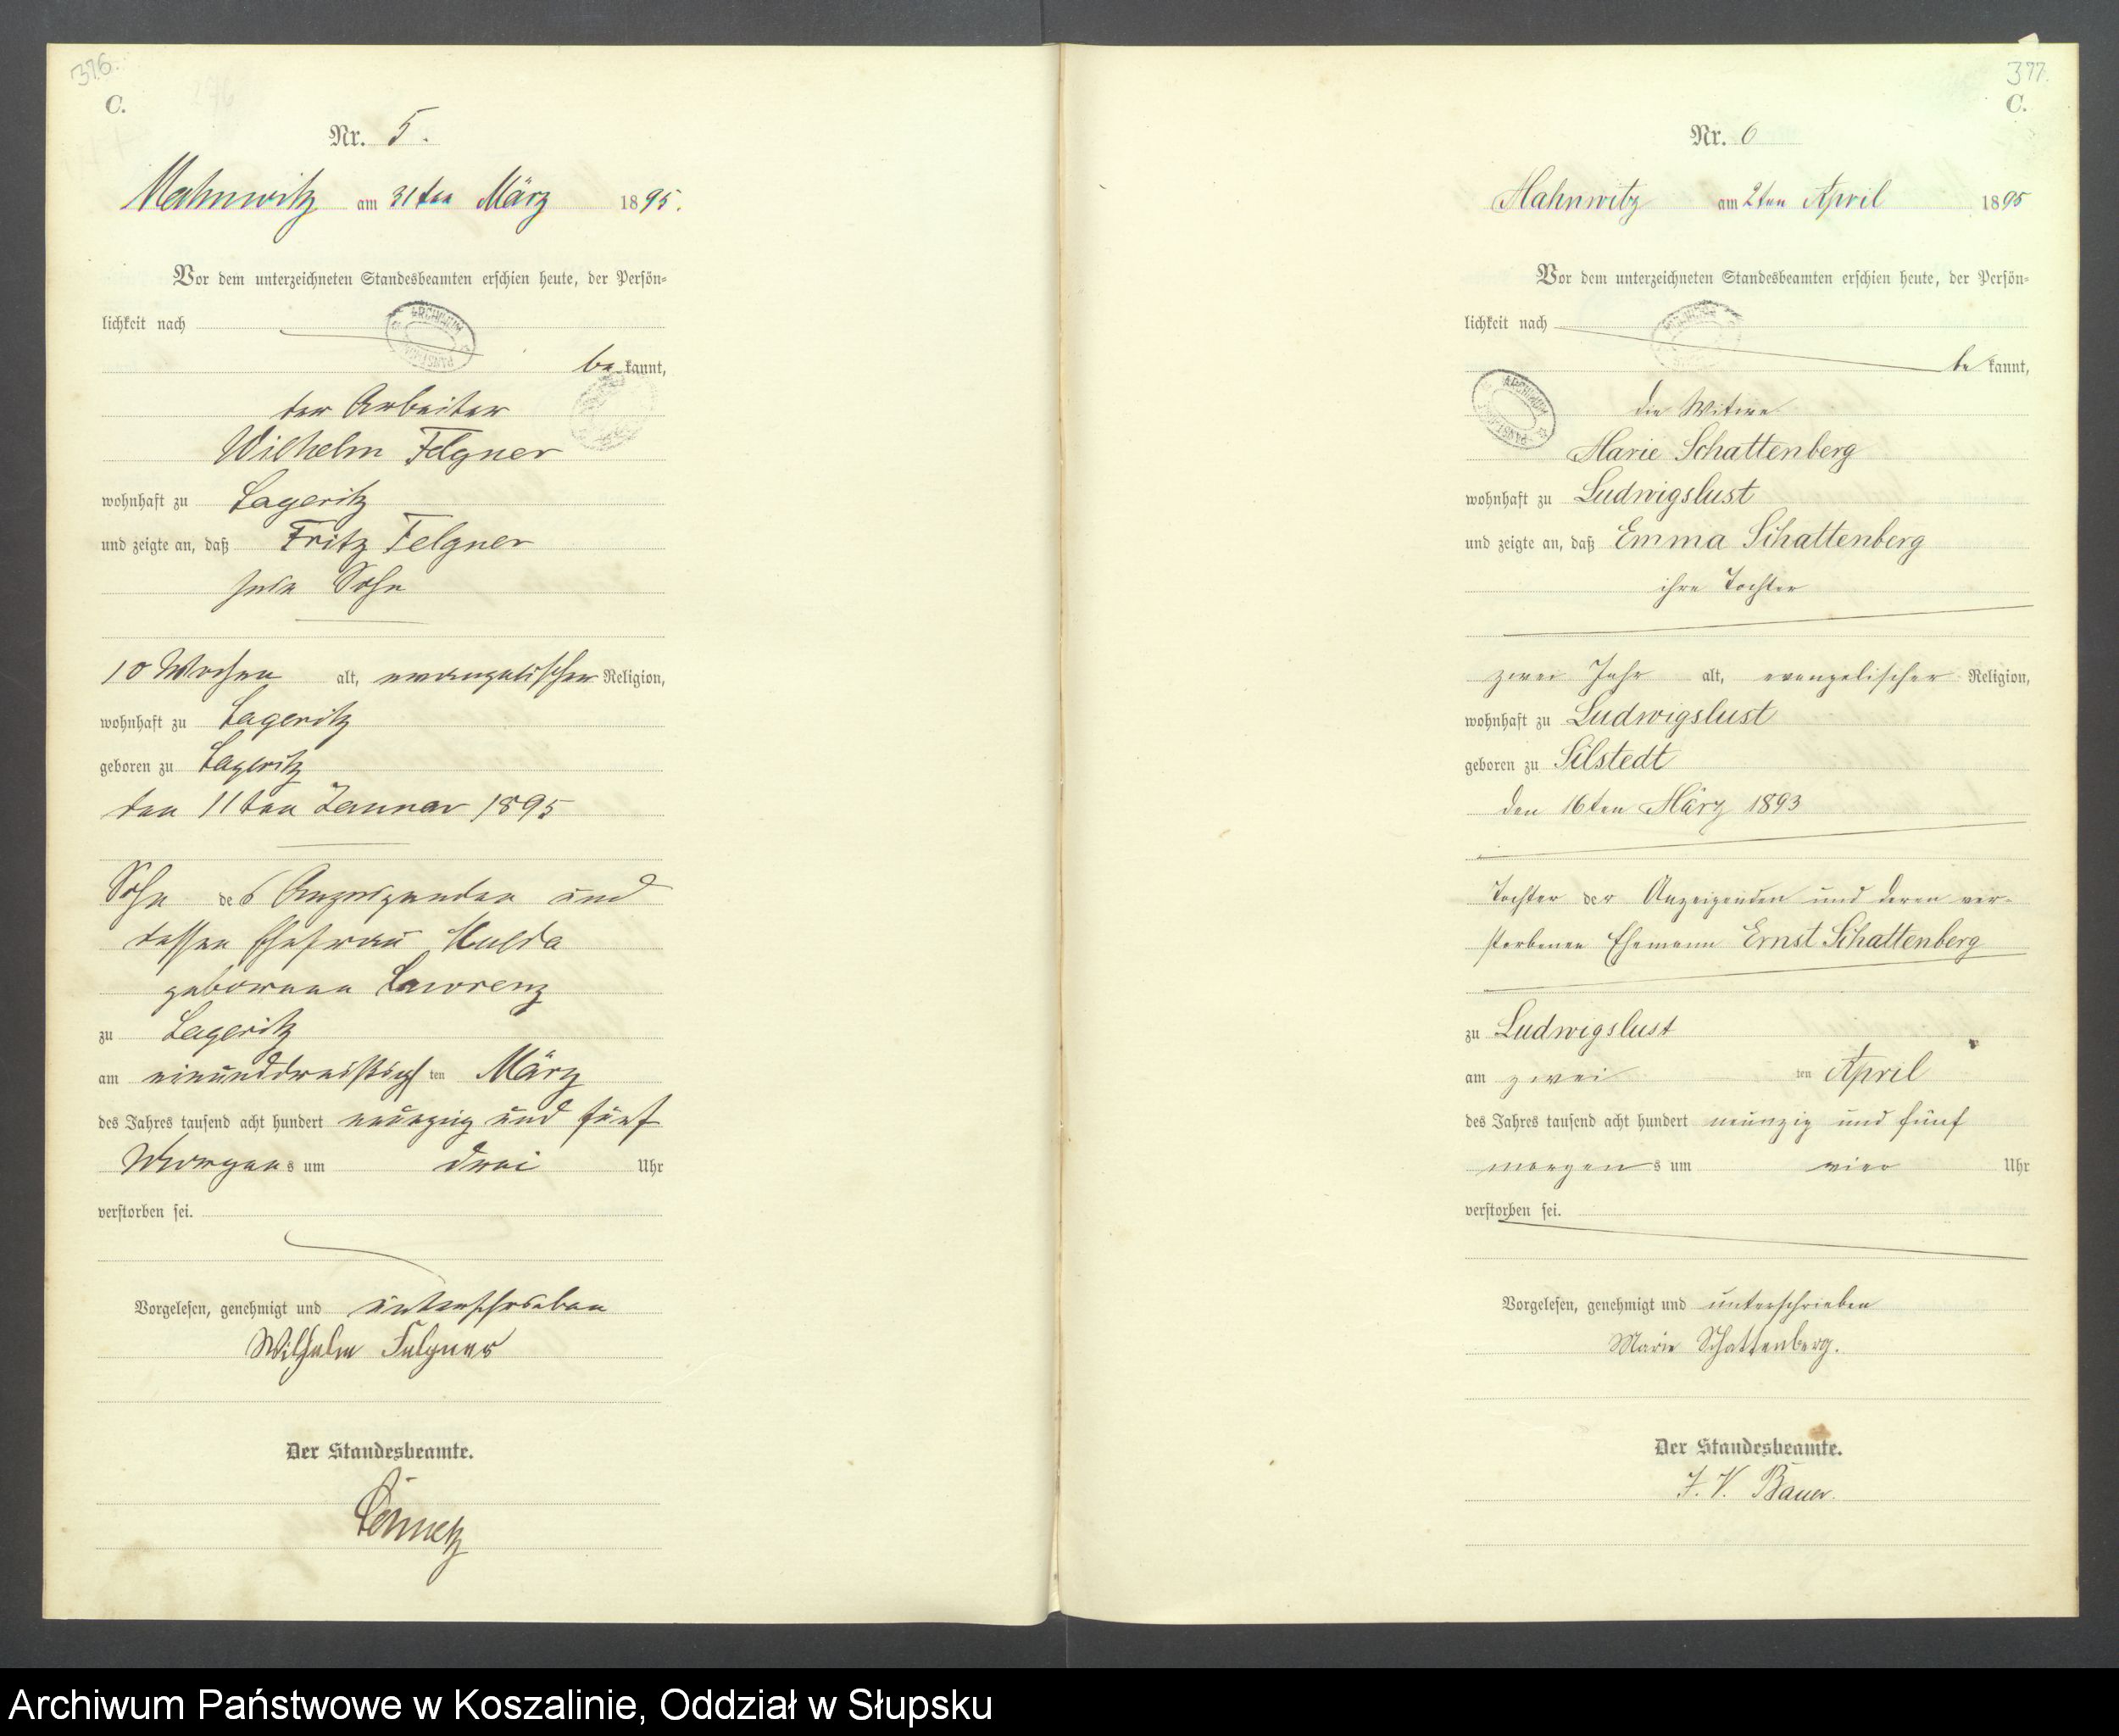 376.
C.
Nr. 5.
Mahnwitz am 31ten März 1895.
Vor dem unterzeichneten Standesbeamten erschien heute, der Persön-
lichkeit nach
bekannt,
der Arbeiter
Wilhelm Felgner
wohnhaft zu Lageritz
und zeigte an, daß Fritz Felgner
sein Sohn
10 Wochen alt, evangelischer Religion,
wohnhaft zu Lageritz
geboren zu Lageritz
den 11ten Januar 1895
Sohn des Anzeigenden und
dessen Ehefrau Hulda
geborenen Lawrenz
zu Lageritz
am einunddreißigsten März
des Jahres tausend acht hundert neunzig und fünf
Morgens um drei Uhr
verstorben sei.
Vorgelesen, genehmigt und unterschrieben
Wilhelm Felgner
Der Standesbeamte.
377.
C.
Nr. 6
Mahnwitz am 2ten April 1895
Vor dem unterzeichneten Standesbeamten erschien heute, der Persön-
lichkeit nach
bekannt,
die Witwe
Marie Schattenberg
wohnhaft zu Ludwigslust
und zeigte an, daß Emma Schattenberg
ihre Tochter
zwei Jahr alt, evangelischer Religion,
wohnhaft zu Ludwigslust
geboren zu Silstedt
den 16ten März 1893
Tochter der Anzeigenden und deren ver-
storbenen Ehemann Ernst Schattenberg
zu Ludwigslust
am zweiten April
des Jahres tausend acht hundert neunzig und fünf
morgens um vier Uhr
verstorben sei.
Vorgelesen, genehmigt und unterschrieben
Marie Schattenberg.
Der Standesbeamte.
J. V. Bauer.
Archiwum Państwowe w Koszalinie, Oddział w Słupsku